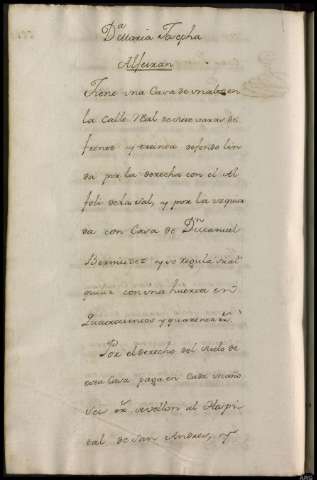 Dª Maria Josepha
Alfeiran
Tiene una Casa de un alto en
la Calle Real de siete varas de
frente y treinta de fondo lin
da por la derecha con el Al
foli de la Sal, y por la izquier
da con Casa de Dn Manuel
Bermudez y se regula su al
quiler con una huerta en
Quatrocientos y quarenta rs.
Por el derecho del suelo de
esta Casa paga en Cada un año
seis rs. de vellon al Hospi
tal de San Andres, y